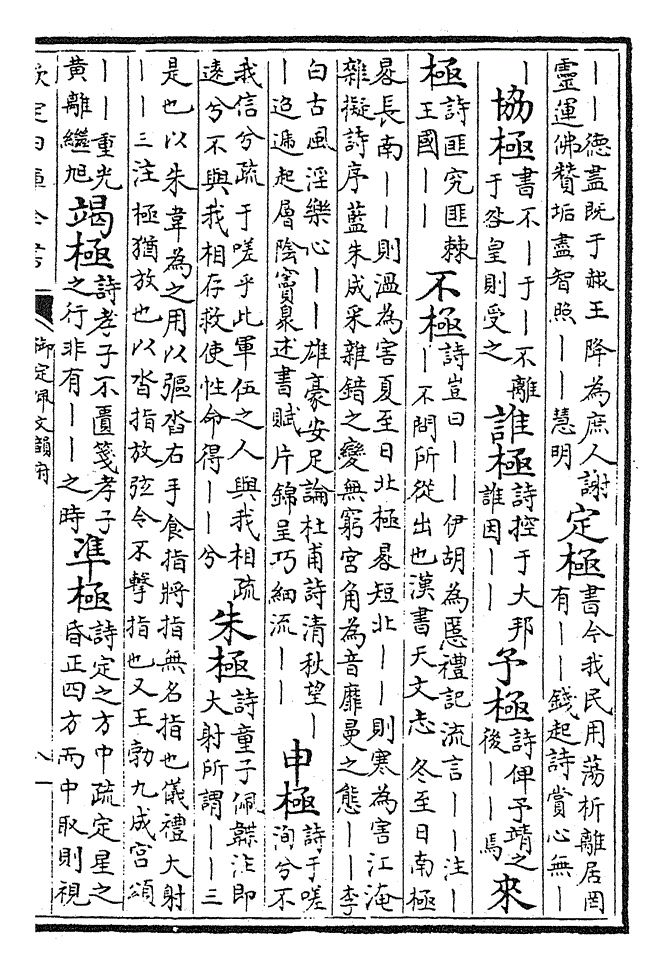 ｜｜德盡既于赧王降為庶人謝
靈運佛贊垢盡智照｜｜慧明
定極
書今我民用蕩析離居罔
有｜｜錢起詩賞心無｜
｜
協極
書不｜于｜不離
于咎皇則受之
誰極
詩控于大邦
誰因｜｜
予極
詩俾予靖之
後｜｜焉
來
極
詩匪究匪棘
王國｜｜
不極
詩豈曰｜｜伊胡為慝禮記流言｜｜注｜
｜不問所從出也漢書天文志冬至日南極
晷長南｜｜則溫為害夏至日北極晷短北｜｜則寒為害江淹
雜擬詩序藍朱成采雜錯之變無窮宮角為音靡曼之態｜｜李
白古風淫樂心｜｜雄豪安足論杜甫詩清秋望｜
｜迢遞起層陰竇臮述書賦片錦呈巧細流｜｜
申極
詩于嗟
洵兮不
我信兮疏于嗟乎此軍伍之人與我相疏
遠兮不與我相存救使性命得｜｜兮
朱極
詩童子佩韘注即
大射所謂｜｜三
是也以朱韋為之用以彄沓右手食指將指無名指也儀禮大射
｜｜三注極猶放也以沓指放弦令不擊指也又王勃九成宮頌
｜｜重光
黄離繼旭
竭極
詩孝子不匱箋孝子
之行非有｜｜之時
準極
詩定之方中疏定星之
昏正四方而中取則視
欽定四庫全書
御定佩文韻府
八